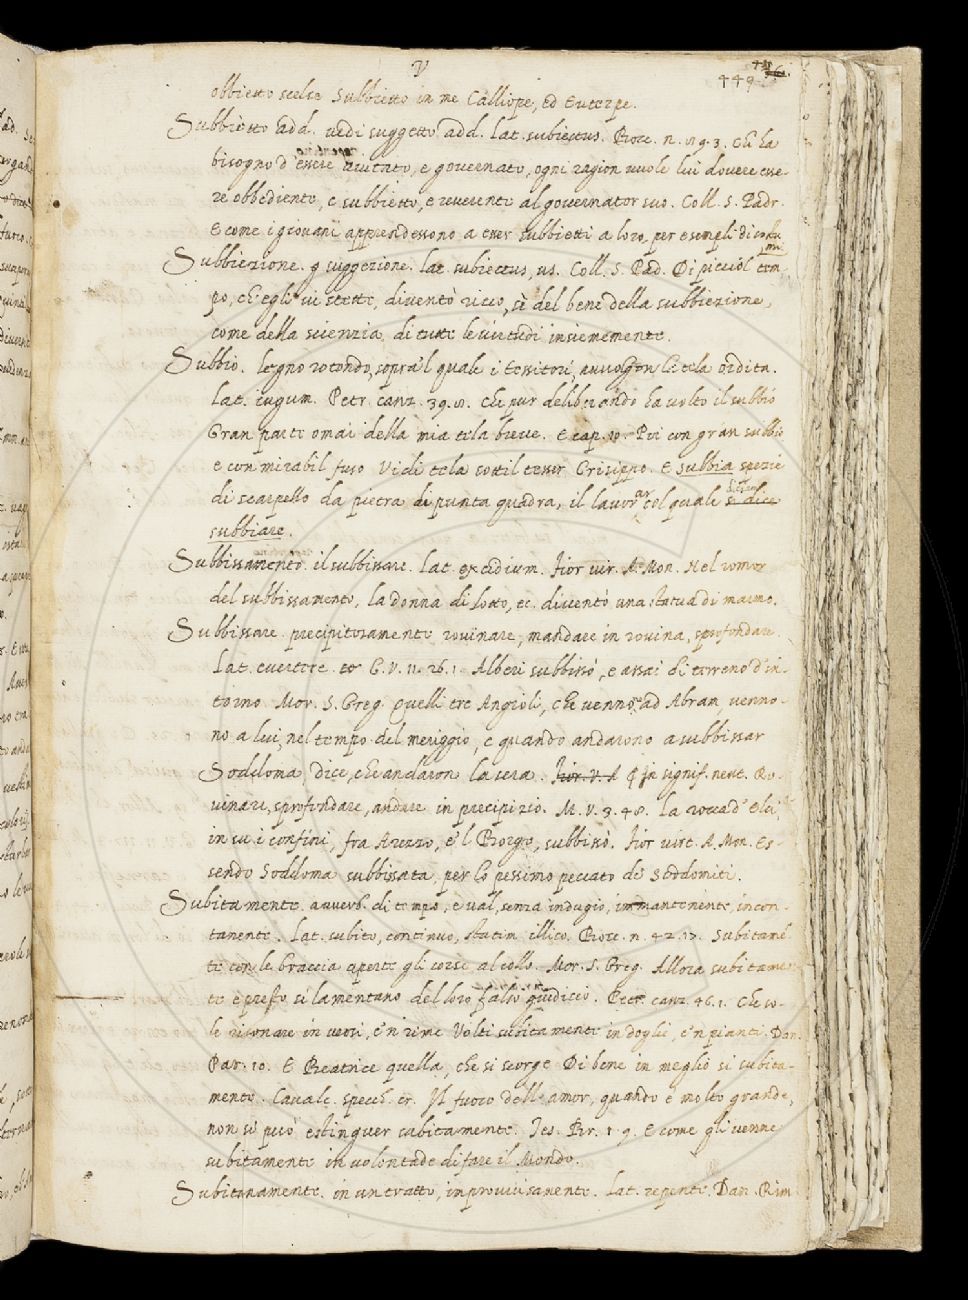 V
449
obbietto scelse Subbietto in me Calliope, ed Euterpe.
Subbietto add. vedi suggetto add. Lat. subiectus. Bocc. n. 19. 3. Chi ha
bisogno d'essere aiutato, e governato, ogni ragion vuole lui dovere esse-
re obbediente, e subbietto, e reverente al governator suo. Coll. S. Padr.
E come i giovani apprendessono a esser subbietti a loro, per esempli di
Subbiezione. q suggezione. Lat. subiectus, us. Coll. S. Pad. Di picciol tem-
po, ch'egli vi stette, diventò ricco, sè del bene della subbiezione,
come della scienzia, di tutte le virtudi insiememente.
Subbio. legno rotondo, sopra'l quale i tessitori, avvolgon la tela ordita.
Lat. iugum. Petr. canz. 39. 8. Che pur deliberando ha volto il subbio
Gran parte omai della mia tela breve. E cap. 10. Poi con gran subbio
e con mirabil fuso Vidi tela sottil tesser Crisippo. E subbia spezie
di scarpello da pietra di punta quadra, il lavorar col quale si dice
subbiare.
Subbissamento. il subbissare. Lat. excidium. Fior. vir. A. Mon. Nel romor
del subbissamento, la donna di Lotto, ec. diventò una statua di marmo.
Subbissare. precipitosamente rovinare, mandare in rovina, sprofondare.
Lat. evertere. G. V. 11. 26. 1. Alberi subbissò, e assai di terreno d'in-
torno. Mor. S. Greg. Quelli tre Angioli, che vennero ad Abram, venno-
no a lui, nel tempo del meriggio, e quando andarono a subbissar
Soddoma, dice, che andaron la sera. Fior. V. A ¶ In signif. neut. Ro-
vinare, sprofondare, andare in precipizio. M. V. 3. 48. La rocca d'Elci,
in su i confini, fra Arezzo, e'l Borgo, subbissò. Fior. virt. A. Mon. Es-
sendo Soddoma subbissata, per lo pessimo peccato de' Soddomiti.
Subitamente. avverb. di tempo, e val, senza indugio, immantenente, incon-
tanente. Lat. subito, continuo, statim illico. Bocc. n. 42. 17. Subitamẽ-
te con le braccia aperte gli corse al collo. Mor. S. Greg. Allora subitamen-
te e presso si lamentano del loro falso giudicio. Petr. canz. 46. 1. Che so-
le risonare in versi, e'n rime Volti subitamente in doglie, e'n pianti. Dan.
Par. 10. E Beatrice quella, che si scorge Di bene in meglio si subita-
mente. Cavalc. specch. cr. Il fuoco dell'amor, quando è molto grande,
non si può estinguer subitamente. Tes. Br. 1. 9. E come gli venne
subitamente in volontade di fare il Mondo.
Subitanamente. in un tratto, improvvisamente. Lat. repente. Dan. Rim